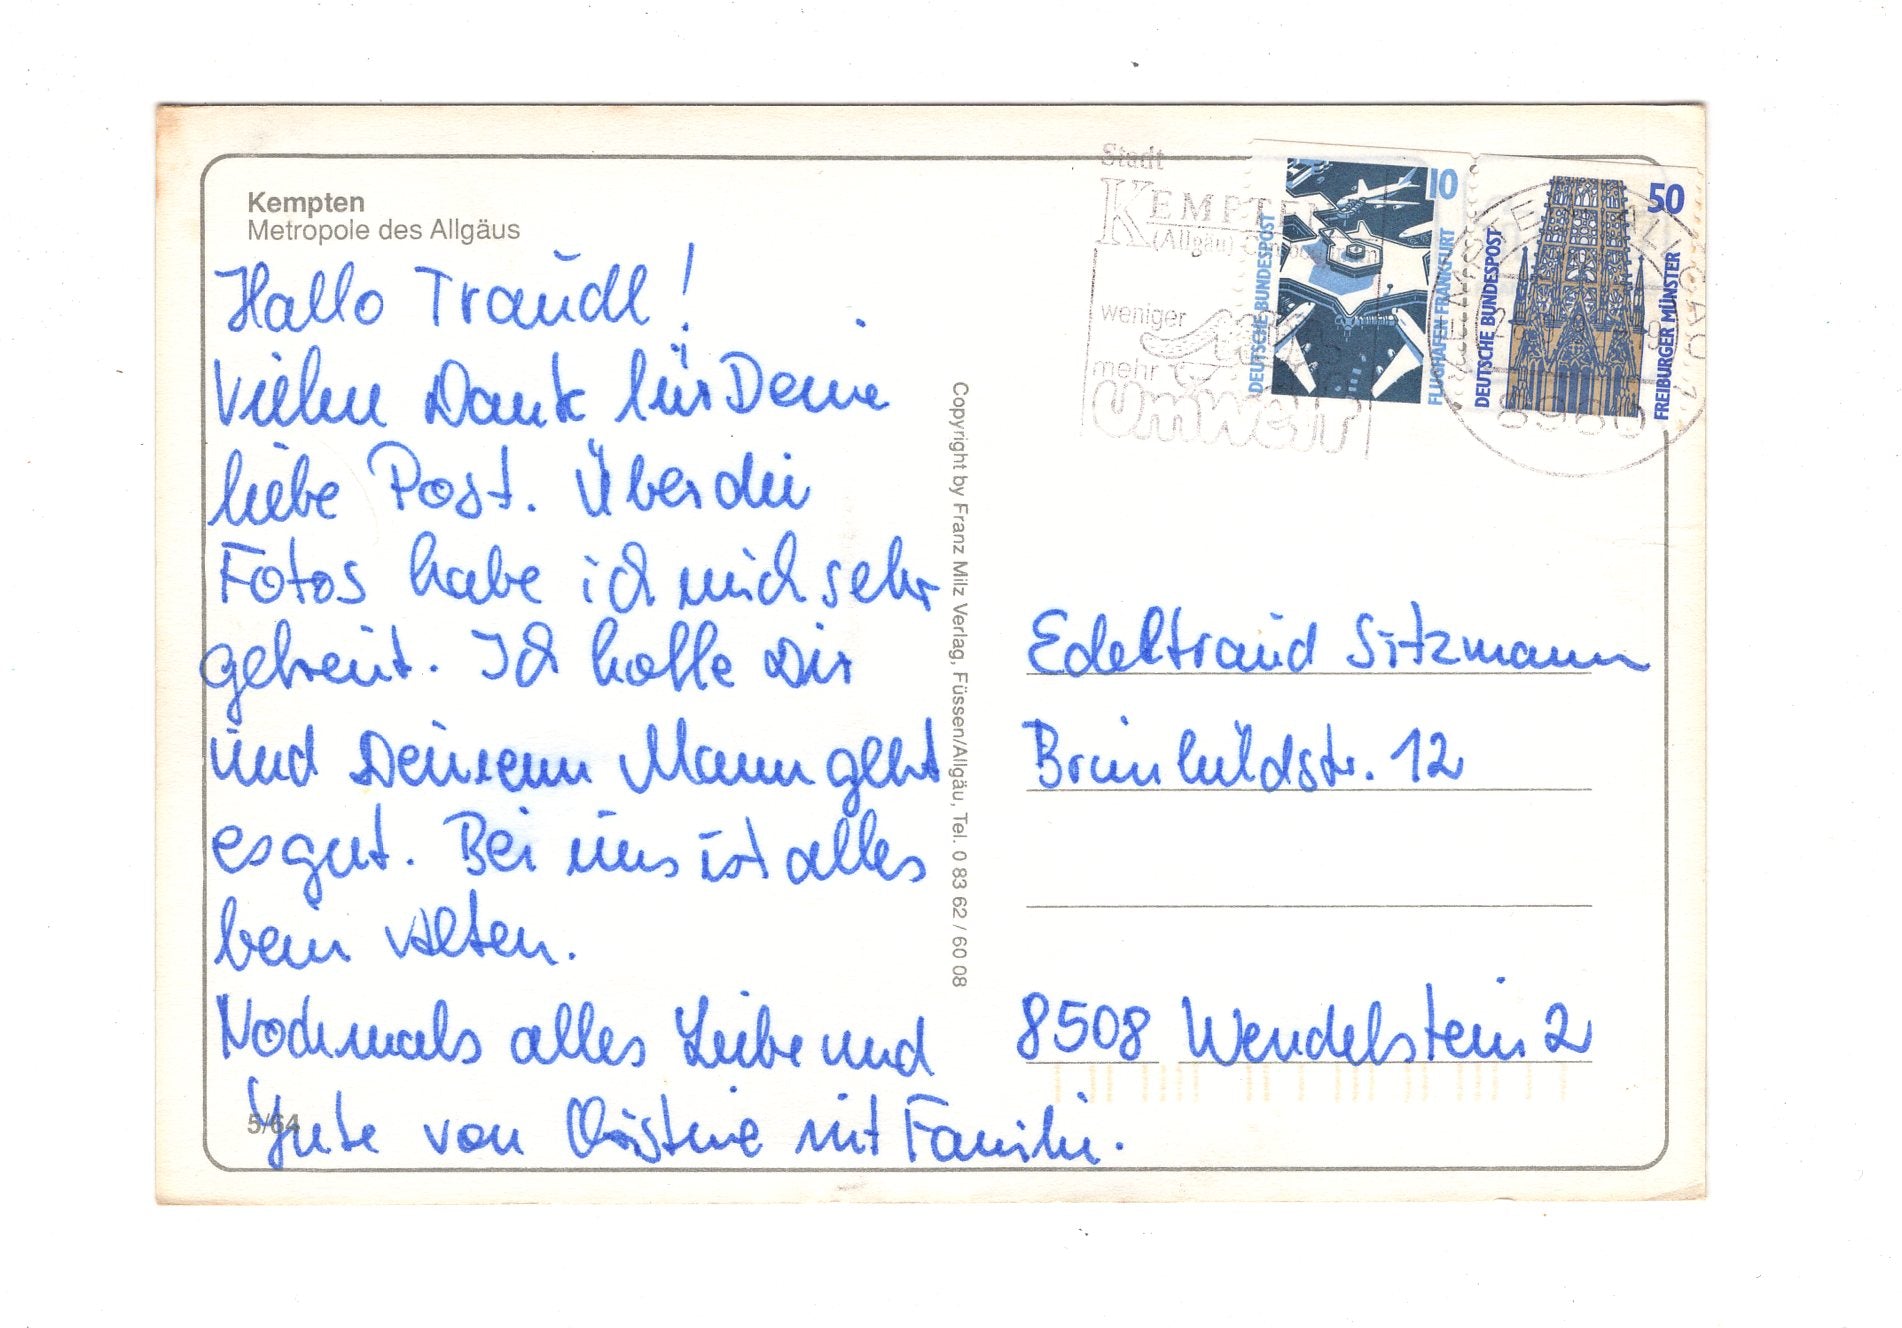 Kempten
Metropole des Allgäus
Hallo Traudl!
Vielen Dank für Deine
liebe Post. Über die
Fotos habe ich mich sehr
gefreut. Ich hoffe Dir
und Deinem Mann geht
es gut. Bei uns ist alles
beim Alten.
Nochmals alles Liebe und
Gute von Christine mit Familie.
5/64
Copyright by Franz Milz Verlag, Füssen/Allgäu, Tel. 0 83 62 / 60 08
Stadt
KEMPTEN
(Allgäu)
weniger
mehr
Umwelt
10
DEUTSCHE BUNDESPOST
FLUGHAFEN FRANKFURT
50
DEUTSCHE BUNDESPOST
FREIBURGER MÜNSTER
Edeltraud Sitzmann
Brünhildstr. 12
8508 Wendelstein 2